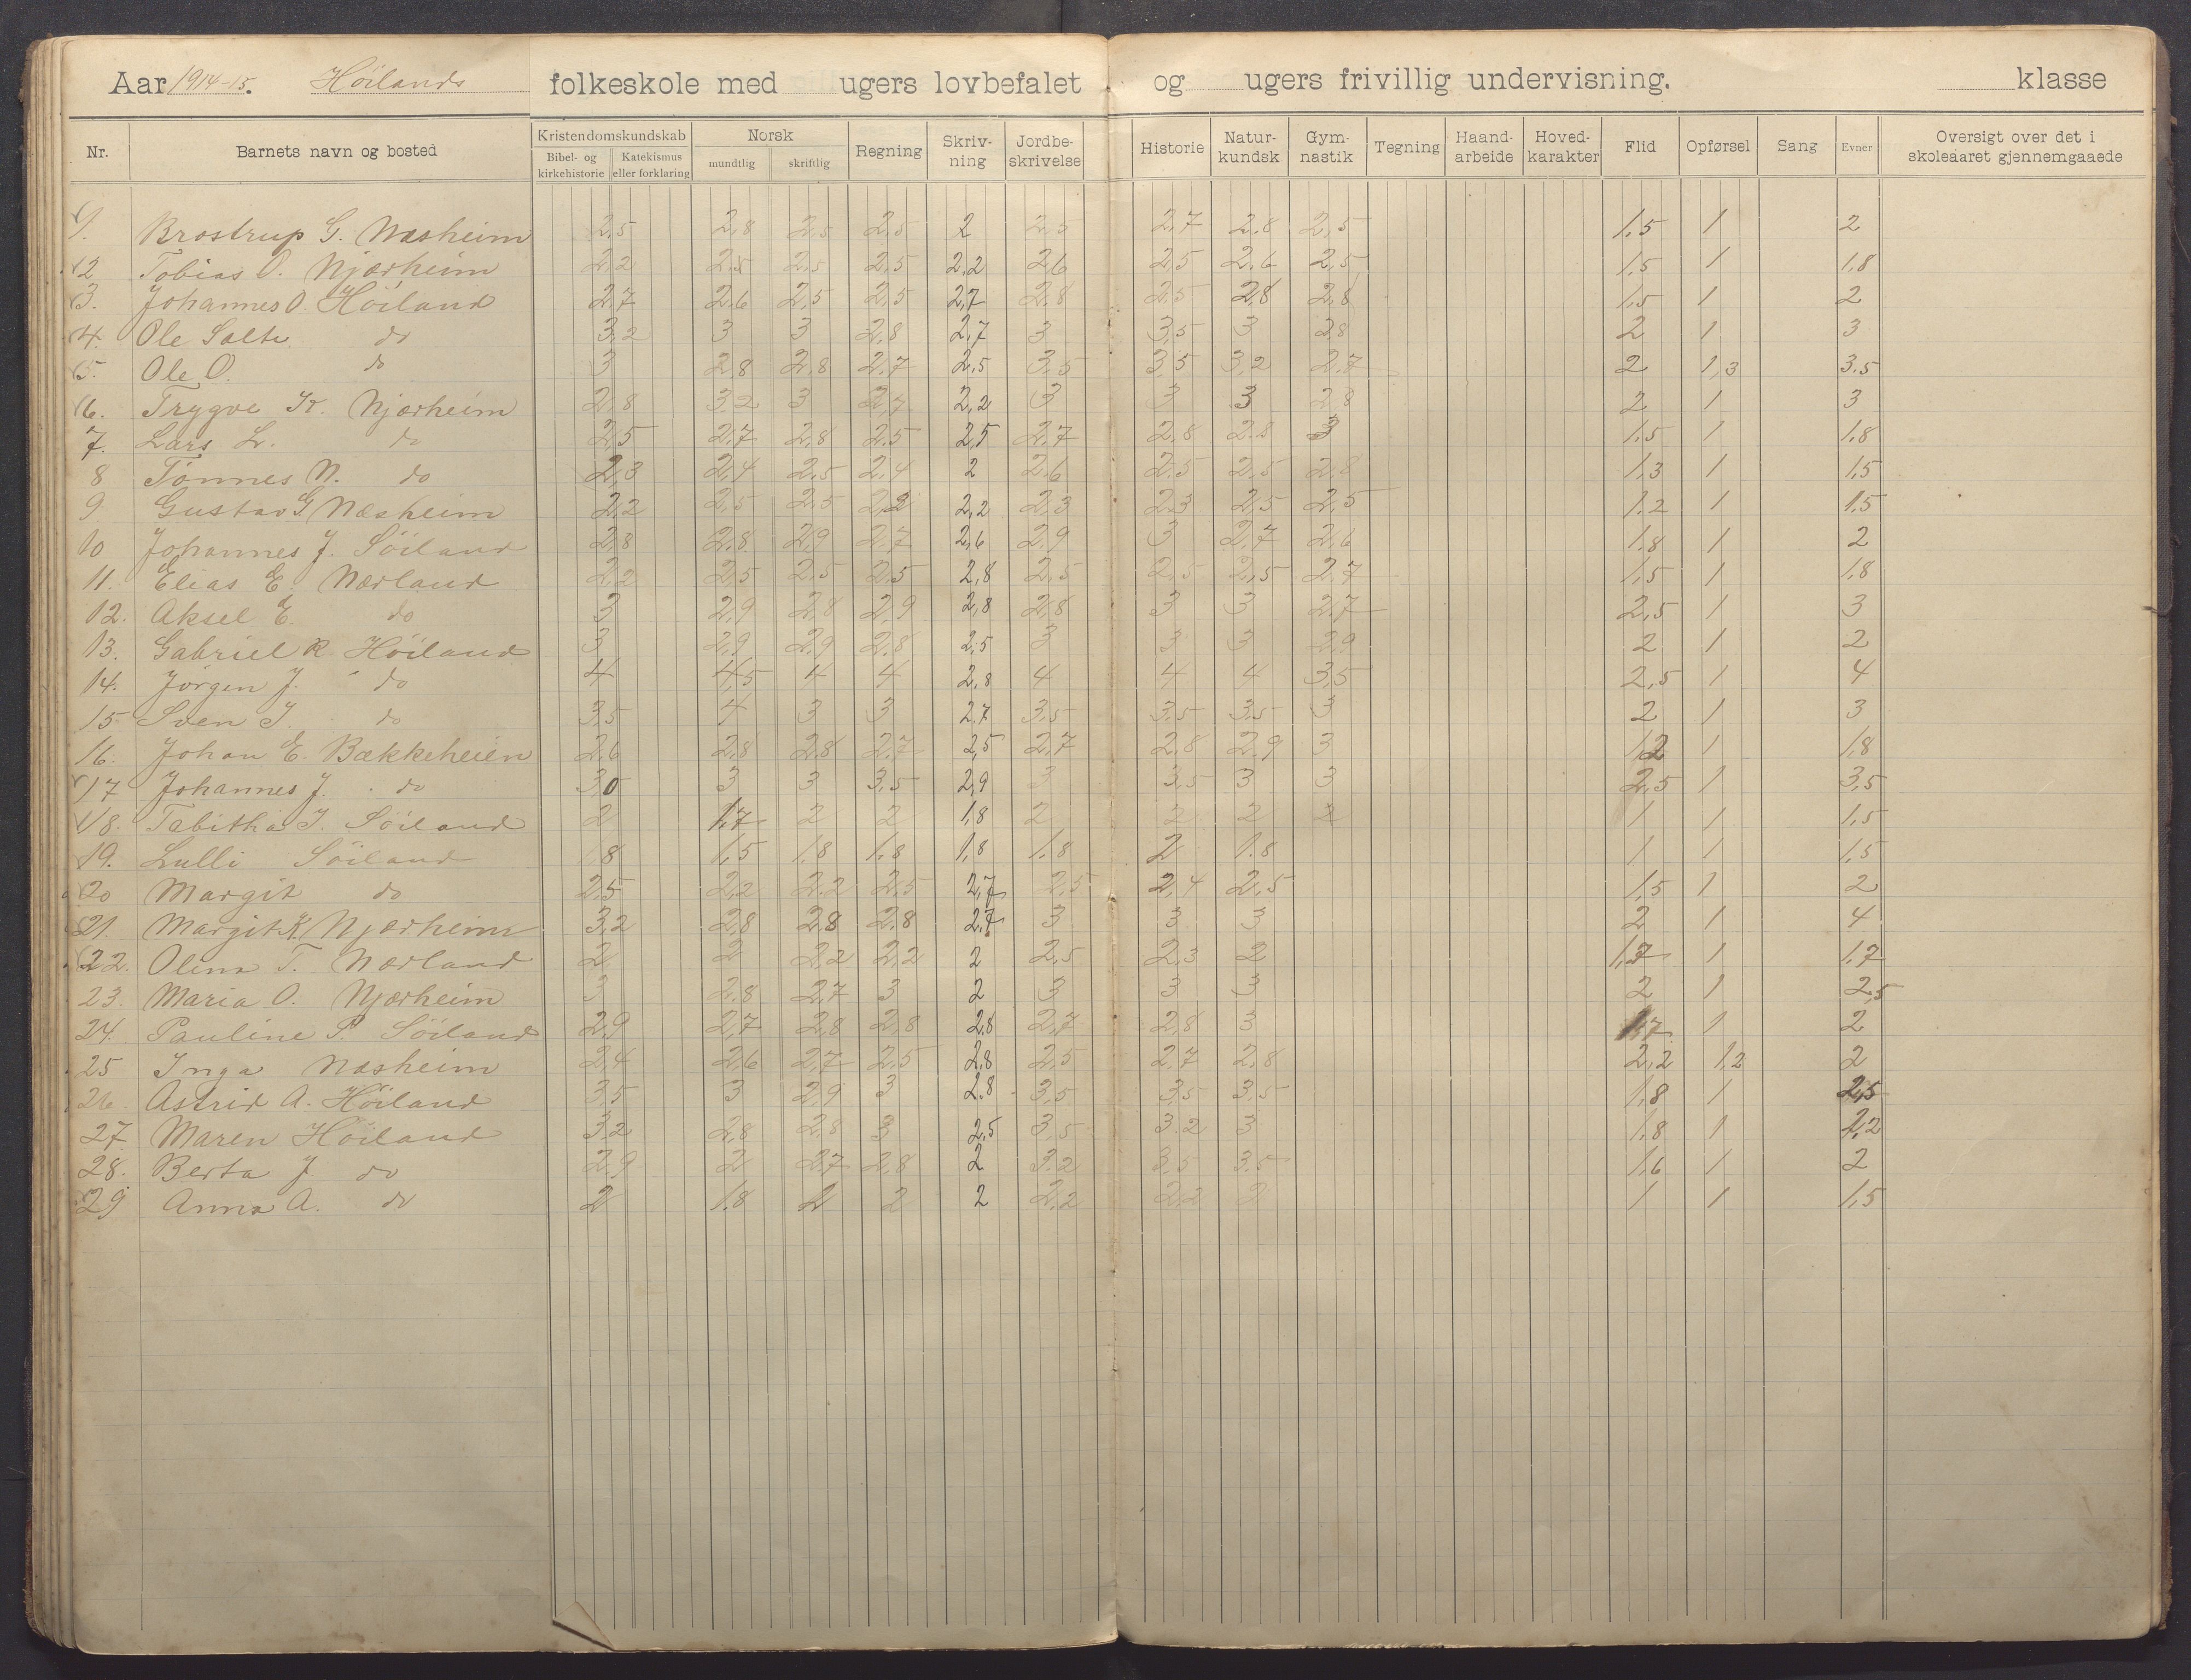 Aar 1914-15. Höilands folkeskole med ugers lovbefalet og ugers frivillig undervisning. klasse
Nr. Barnets navn og bosted Kristendomskundskab Bibel- og kirkehistorie Katekismus eller forklaring Norsk mundtlig skriftlig Regning Skriv-ning Jordbe-skrivelse Historie Natur-kundsk Gym-nastik Tegning Haand-arbeide Hoved-karakter Flid Opførsel Sang Evner Oversigt over det i skoleaaret gjennemgaaede
1. Brostrup G. Næsheim 2,5 2,8 2,5 2,5 2 2,5 2,7 2,8 2,5 1,5 1 2
2 Tobias O. Njærheim 2,2 2,5 2,5 2,5 2,2 2,6 2,5 2,6 2,5 1,5 1 1,8
3. Johannes O. Höiland 2,7 2,6 2,5 2,5 2,7 2,8 2,5 2,8 2,8 1,5 1 2
4. Ole Salte do 3,2 3 3 2,8 2,7 3 3,5 3 2,8 2 1 3
5. Ole O. do 3 2,8 2,8 2,7 2,5 3,5 3,5 3,2 2,7 2 1,3 3,5
6. Trygve K. Njærheim 2,8 3,2 3 2,7 2,2 3 3 3 2,8 2 1 3
7. Lars L. do 2,5 2,7 2,8 2,5 2,5 2,7 2,8 2,8 3 1,5 1 1,8
8 Tönnes N. do 2,3 2,4 2,5 2,4 2 2,6 2,5 2,5 2,8 1,3 1 1,5
9. Gustav G Næsheim 2,2 2,5 2,5 2,2 2,2 2,3 2,3 2,5 2,5 1,2 1 1,5
10 Johannes J. Söiland 2,8 2,8 2,9 2,7 2,6 2,9 3 2,7 2,6 1,8 1 2
11. Elias E. Nærland 2,2 2,5 2,5 2,5 2,8 2,5 2,5 2,5 2,7 1,5 1 1,8
12. Aksel E. do 3 2,9 2,8 2,9 2,8 2,8 3 3 2,7 2,5 1 3
13. Gabriel R. Höiland 3 2,9 2,9 2,8 2,5 3 3 3 2,9 2 1 2
14. Jörgen J. do 4 4,5 4 4 2,8 4 4 4 3,5 2,5 1 4
15 Sven J. do 3,5 4 3 3 2,7 3,5 3,5 3,5 3 2 1 3
16. Johan E. Bækkeheien 2,6 2,8 2,8 2,7 2,5 2,7 2,8 2,9 3 1,2 1 1,8
17 Johannes J. do 3,0 3 3 3,5 2,9 3 3,5 3 3 2,5 1 3,5
18. Tabitha J. Söiland 2 1,7 2 2 1,8 2 2 2 2 1 1 1,5
19. Lulli Söiland 1,8 1,5 1,8 1,8 1,8 1,8 2 1,8 1 1 1,5
20 Margit do 2,5 2,2 2,2 2,5 2,7 2,5 2,4 2,5 1,5 1 2
21. Margit K. Njærheim 3,2 2,8 2,8 2,8 2,7 3 3 3 2 1 4
22. Olena T. Nærland 2 2 2,2 2,2 2 2,5 2,3 2 1,7 1 1,7
23. Maria O. Njærheim 3 2,8 2,7 3 2 3 3 3 2 1 2,5
24. Pauline P. Söiland 2,9 2,7 2,8 2,8 2,8 2,7 2,8 3 1,7 1 2
25 Inga Næsheim 2,4 2,6 2,7 2,5 2,8 2,5 2,7 2,8 2,2 1,2 2
26. Astrid A. Höiland 3,5 3 2,9 3 2,8 3,5 3,5 3,5 1,8 1 2,5
27. Maren Höiland 3,2 2,8 2,8 3 2,5 3,5 3,2 3 1,8 1
28. Berta J do 2,9 2 2,7 2,8 2 3,2 3,5 3,5 1,6 1 2
29 Anna A. do 2 1,8 2 2 2 2,2 2,2 2 1 1 1,5